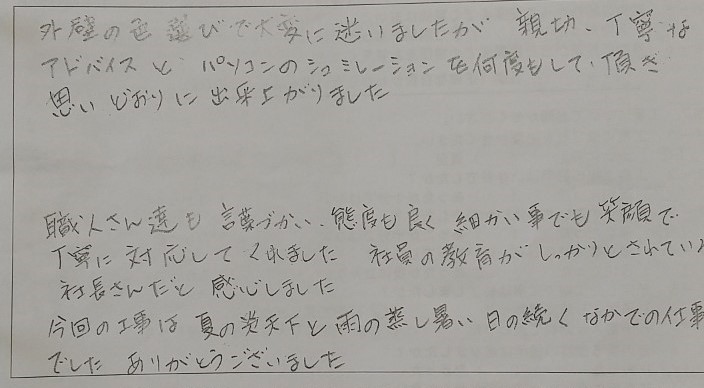 外壁の色選びで大変に迷いましたが 親切、丁寧な
アドバイスと パソコンのシュミレーションを何度もして、頂き
思いどおりに出来上がりました
職人さん達も 言葉づかい、態度も良く 細かい事でも 笑顔で
丁寧に対応してくれました 社員の教育がしっかりとされている
社長さんだと 感心しました
今回の工事は 夏の炎天下と 雨の蒸し暑い日の続く なかでの仕事
でした ありがとうございました